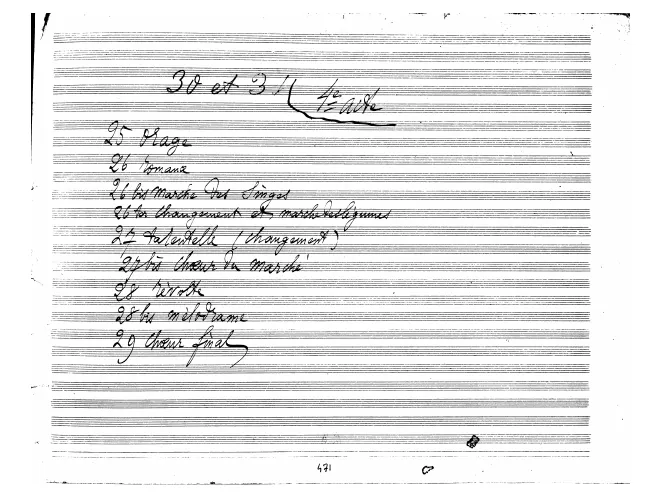 30 et 31
4e acte
25 Orage
26 romance
26 bis marche des Singes
26 ter Changement et marche des légumes
27 tarentelle (changement)
27 bis Chœur du marché
28 révolte
28 bis mélodrame
29 Chœur final
471